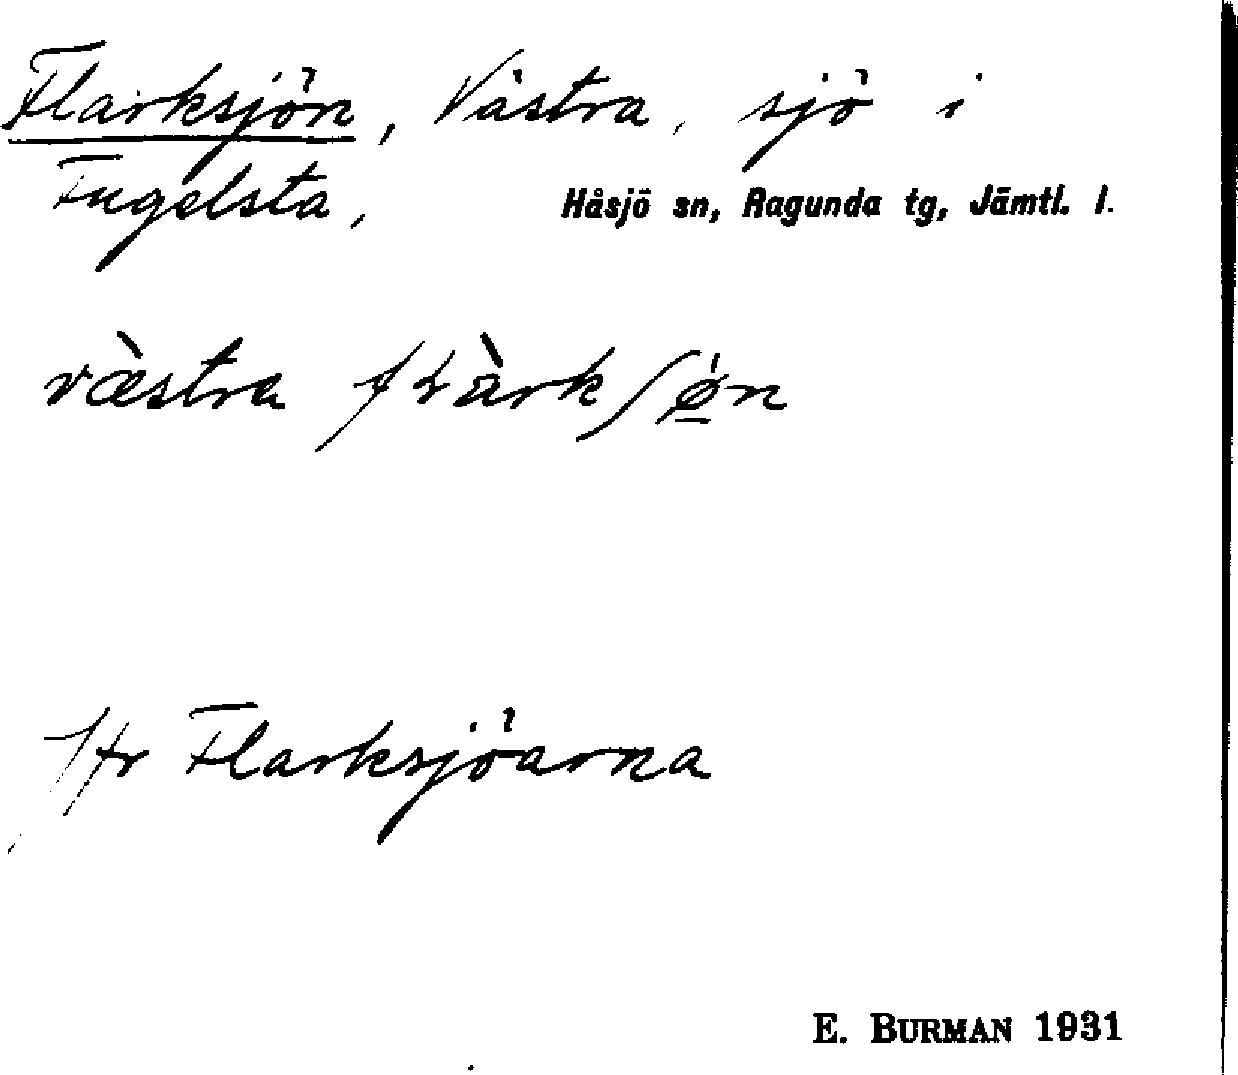 Flarksjön, Västra, sjö i
Fugelsta, Håsjö sn, Ragunda tg, Jämtl. l.
væ̀stra
Jfr Flarksjöarna
E. BURMAN 1931